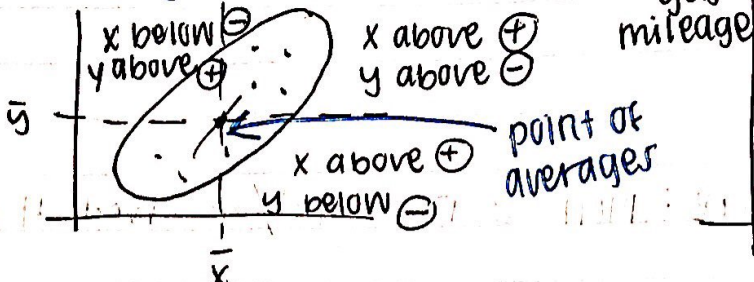 x below ⊖
y above ⊕
x above ⊕
y above ⊖
mileage
ȳ
point of
averages
x above ⊕
y below ⊖
x̄